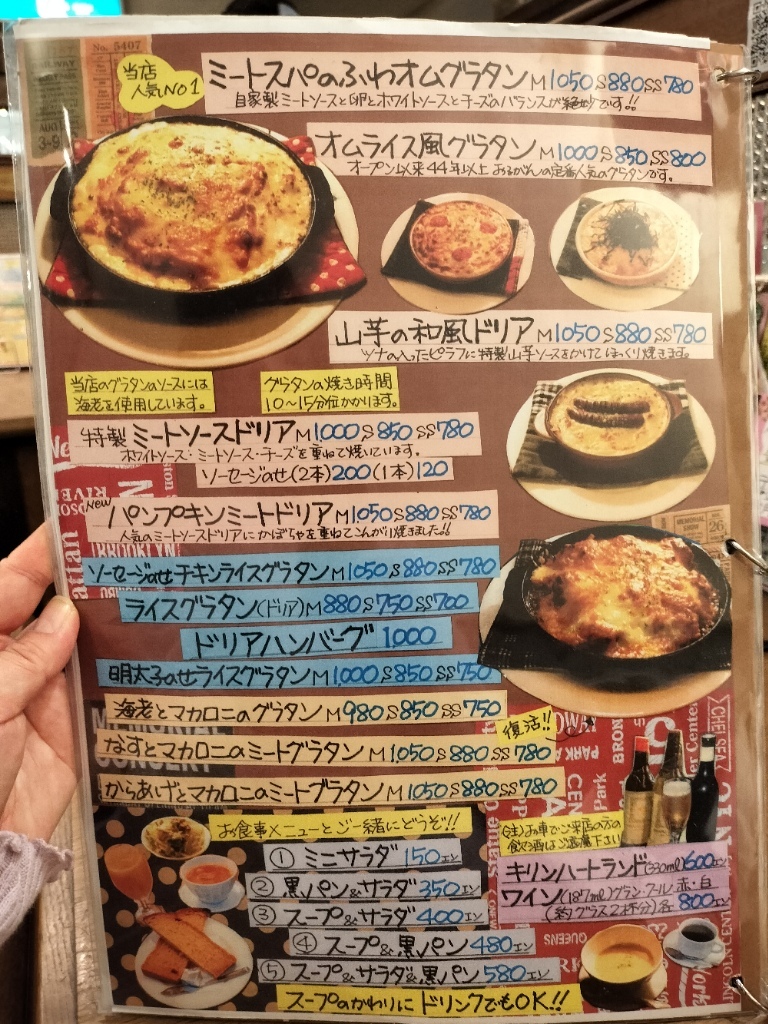 No. 5407
当店
人気No1
ミートスパのふわオムグラタン M1050 S880 SS780
自家製ミートソースと卵とホワイトソースとチーズのバランスが絶妙です!!
オムライス風グラタン M1000 S850 SS800
オープン以来44年以上 おるがんの定番人気のグラタンです。
山芋の和風ドリア M1050 S880 SS780
ツナの入ったピラフに特製山芋ソースをかけてほっくり焼きます。
当店のグラタンのソースには
海老を使用しています。
グラタンの焼き時間
10〜15分位かかります。
特製 ミートソースドリア M1,000 S850 SS780
ホワイトソース・ミートソース・チーズを重ねて焼いています。
ソーセージのせ(2本)200(1本)120
New パンプキンミートドリア M1,050 S880 SS780
人気のミートソースドリアにかぼちゃを重ねてこんがり焼きました!!
ソーセージのせチキンライスグラタン M1050 S880 SS780
ライスグラタン(ドリア) M880 S750 SS700
ドリアハンバーグ 1,000
明太子のせライスグラタン M1,000 S850 SS750
海老とマカロニのグラタン M980 S850 SS750
復活!!
なすとマカロニのミートグラタン M1,050 S880 SS780
からあげとマカロニのミートグラタン M1050 S880 SS780
お食事メニューとご一緒にどうぞ!!
① ミニサラダ 150エン
② 黒パン&サラダ 350エン
③ スープ&サラダ 400エン
④ スープ&黒パン 480エン
⑤ スープ&サラダ&黒パン 580エン
スープのかわりにドリンクでもOK!!
(注)お車でご来店の方の
飲酒はご遠慮下さい
キリンハートランド(330ml)600エン
ワイン(187ml)グラン・クール 赤・白
(約グラス2杯分)各 800エン